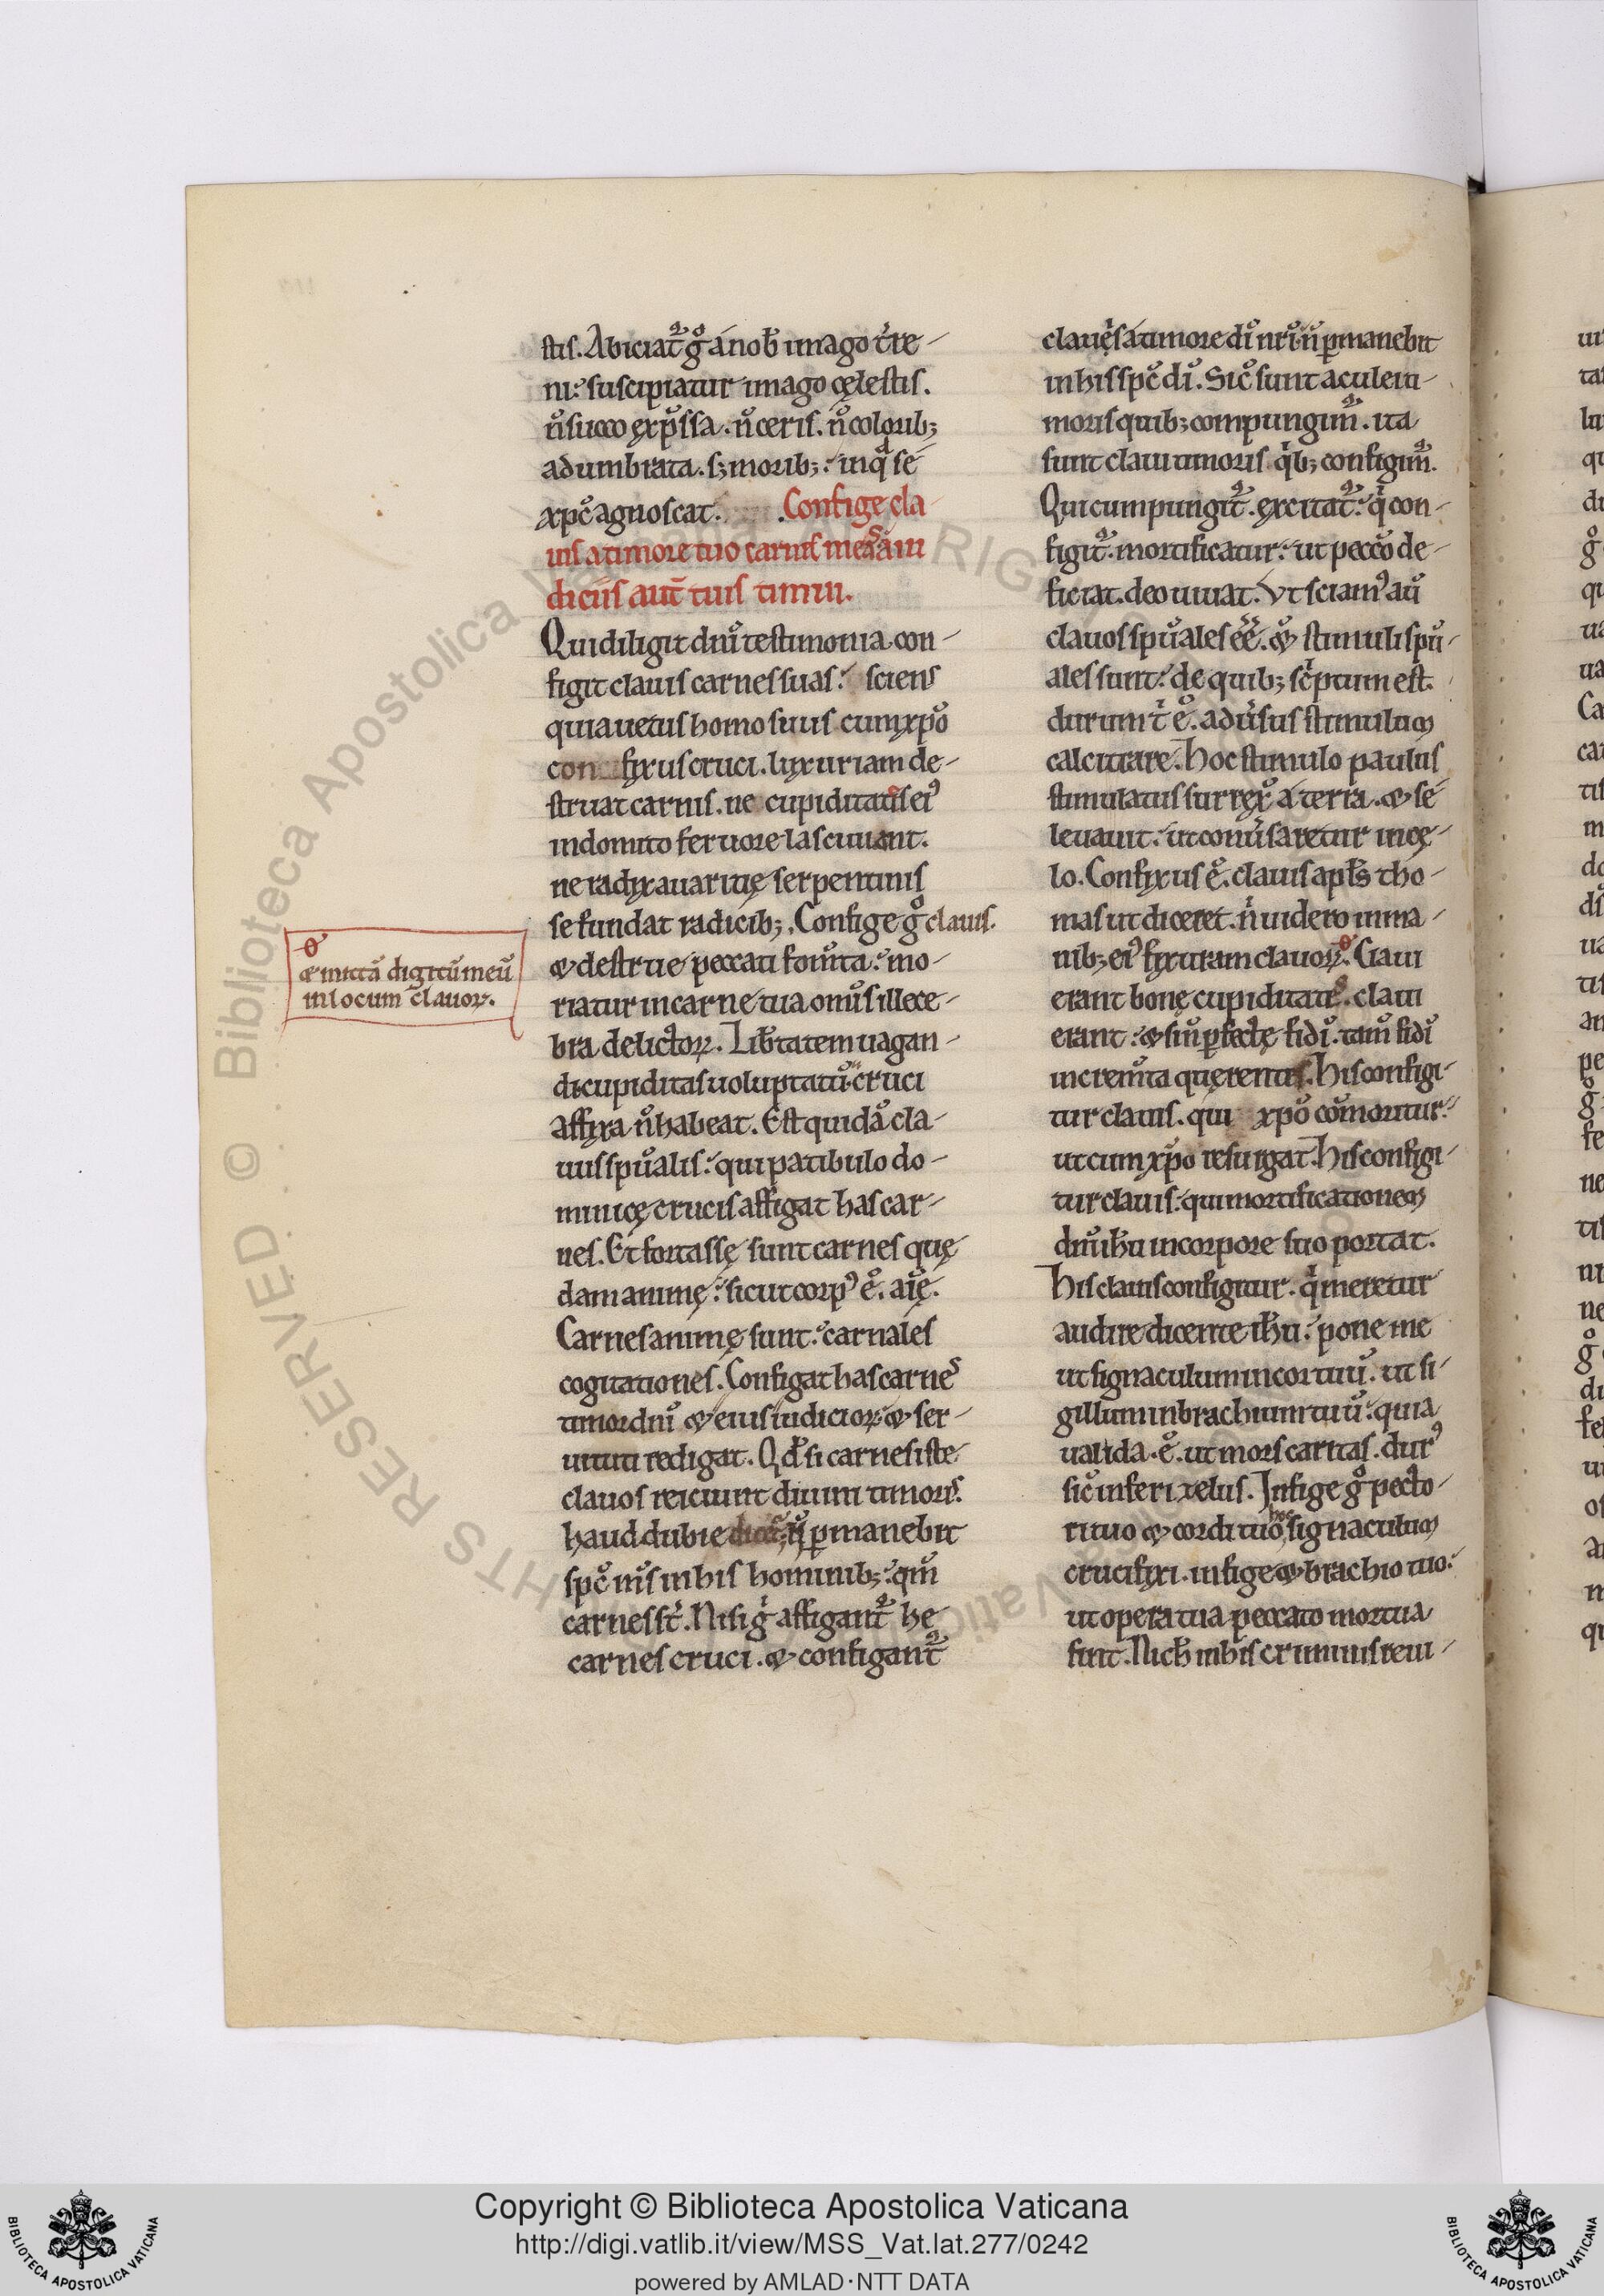 stis. Abiciat᷑ gͦ a nob̄ imago t̓re-
ni: suscipiatur imago cęlestis.
n̄ succo exp̄ssa. n̄ ceris. n̄ colorib;
adumbrata. s; morib;: in q̄ se
xp̄c agnoscat. Confige cla
uis a timore tuo carnes meas a iu
diciis aut̄ tuis timui.
Qui diligit dn̄i testimonia. con-
figit clauis carnes suas: sciens
quia uetus homo suus cum xp̄o
con fixus cruci. luxuriam de-
struat carnis. ne cupiditatis ei᷒
indomito feruore lasciuiant.
ne radix auaritię serpentinis
se fundat radicib;. Confige gͦ clauis.
& destrue peccati fom̄ta: mo-
riatur in carne tua om̄s illece-
bra delictoꝝ. Lib̄tatem uagan-
di cupiditas uoluptatū cruci
affixa n̄ habeat. Est quidā cla-
uus spūalis: qui patibulo do-
minicę crucis affigat has car-
nes. Et fortasse sunt carnes quę
dam animę: sicut corp᷒ ē. aīę.
Carnes animę sunt: carnales
cogitationes. Configat has carnes
timor dn̄i & eius iudicioꝝ: & ser-
uituti redigat. Qd̄ si carnes iste
clauos reiciunt diuini timoris.
haud dubie n̄ ꝑmanebit
spc̄ m̄s in his hominib;: qm̄
carnes st̄. Nisi g̓ affigant᷑ he
carnes cruci. & configant᷑
θ
& mittā digitū meū
in locum clauoꝝ.
clauis a timore dī nr̄i. n̄ ꝑmanebit
in his spc̄ dī. Sic̄ sunt aculei ti-
moris quib; compungim᷑. ita
sunt claui timoris q̓b; configim᷑.
Qui cumpungit᷑. excitat᷑: q̓ con-
figit᷑. mortificatur: ut pecc̄o de-
ficiat. deo uiuat. Vt sciam᷒ aū
clauos spūales eē̄. & stimuli spū-
ales sunt: de quib; sc̓ptum est.
durum t̓ ē. adu̓sus stimulum
calcitrare. Hoc stimulo paulus
stimulatus surrex̄ a terra. & se
leuauit: ut conu̓saretur in cę-
lo. Confixus ē. clauis apl̄s tho-
mas ut diceret. n̓ uidero in ma-
nib; ei᷒ fixuram clauoꝝ. θ Claui
erant bone cupiditatis. claui
erant: & si n̄ ꝑfectę fidī. tam̄ fidī
increm̄ta querentis. His configi-
tur clauis. qui xp̄o com̄oritur:
ut cum xp̄o resurgat. His configi-
tur clauis: qui mortificationem
dn̄i ih̄u in corpore suo portat.
His clauis configitur. q̓ meretur
audire dicente ih̄u: pone me
ut signaculum in cor tuū. ut si-
gillum in brachium tuū: quia
ualida. ē. ut mors caritas. dur᷒
sic̄ inferi zelus. Infige gͦ pecto-
ri tuo & cordi tuo hoc signaculum
crucifixi. infige & brachio tuo:
ut opera tua peccato mortua
sint. Nich̄ in his criminis reui-
Copyright © Biblioteca Apostolica Vaticana
http://digi.vatlib.it/view/MSS_Vat.lat.277/0242
powered by AMLAD·NTT DATA